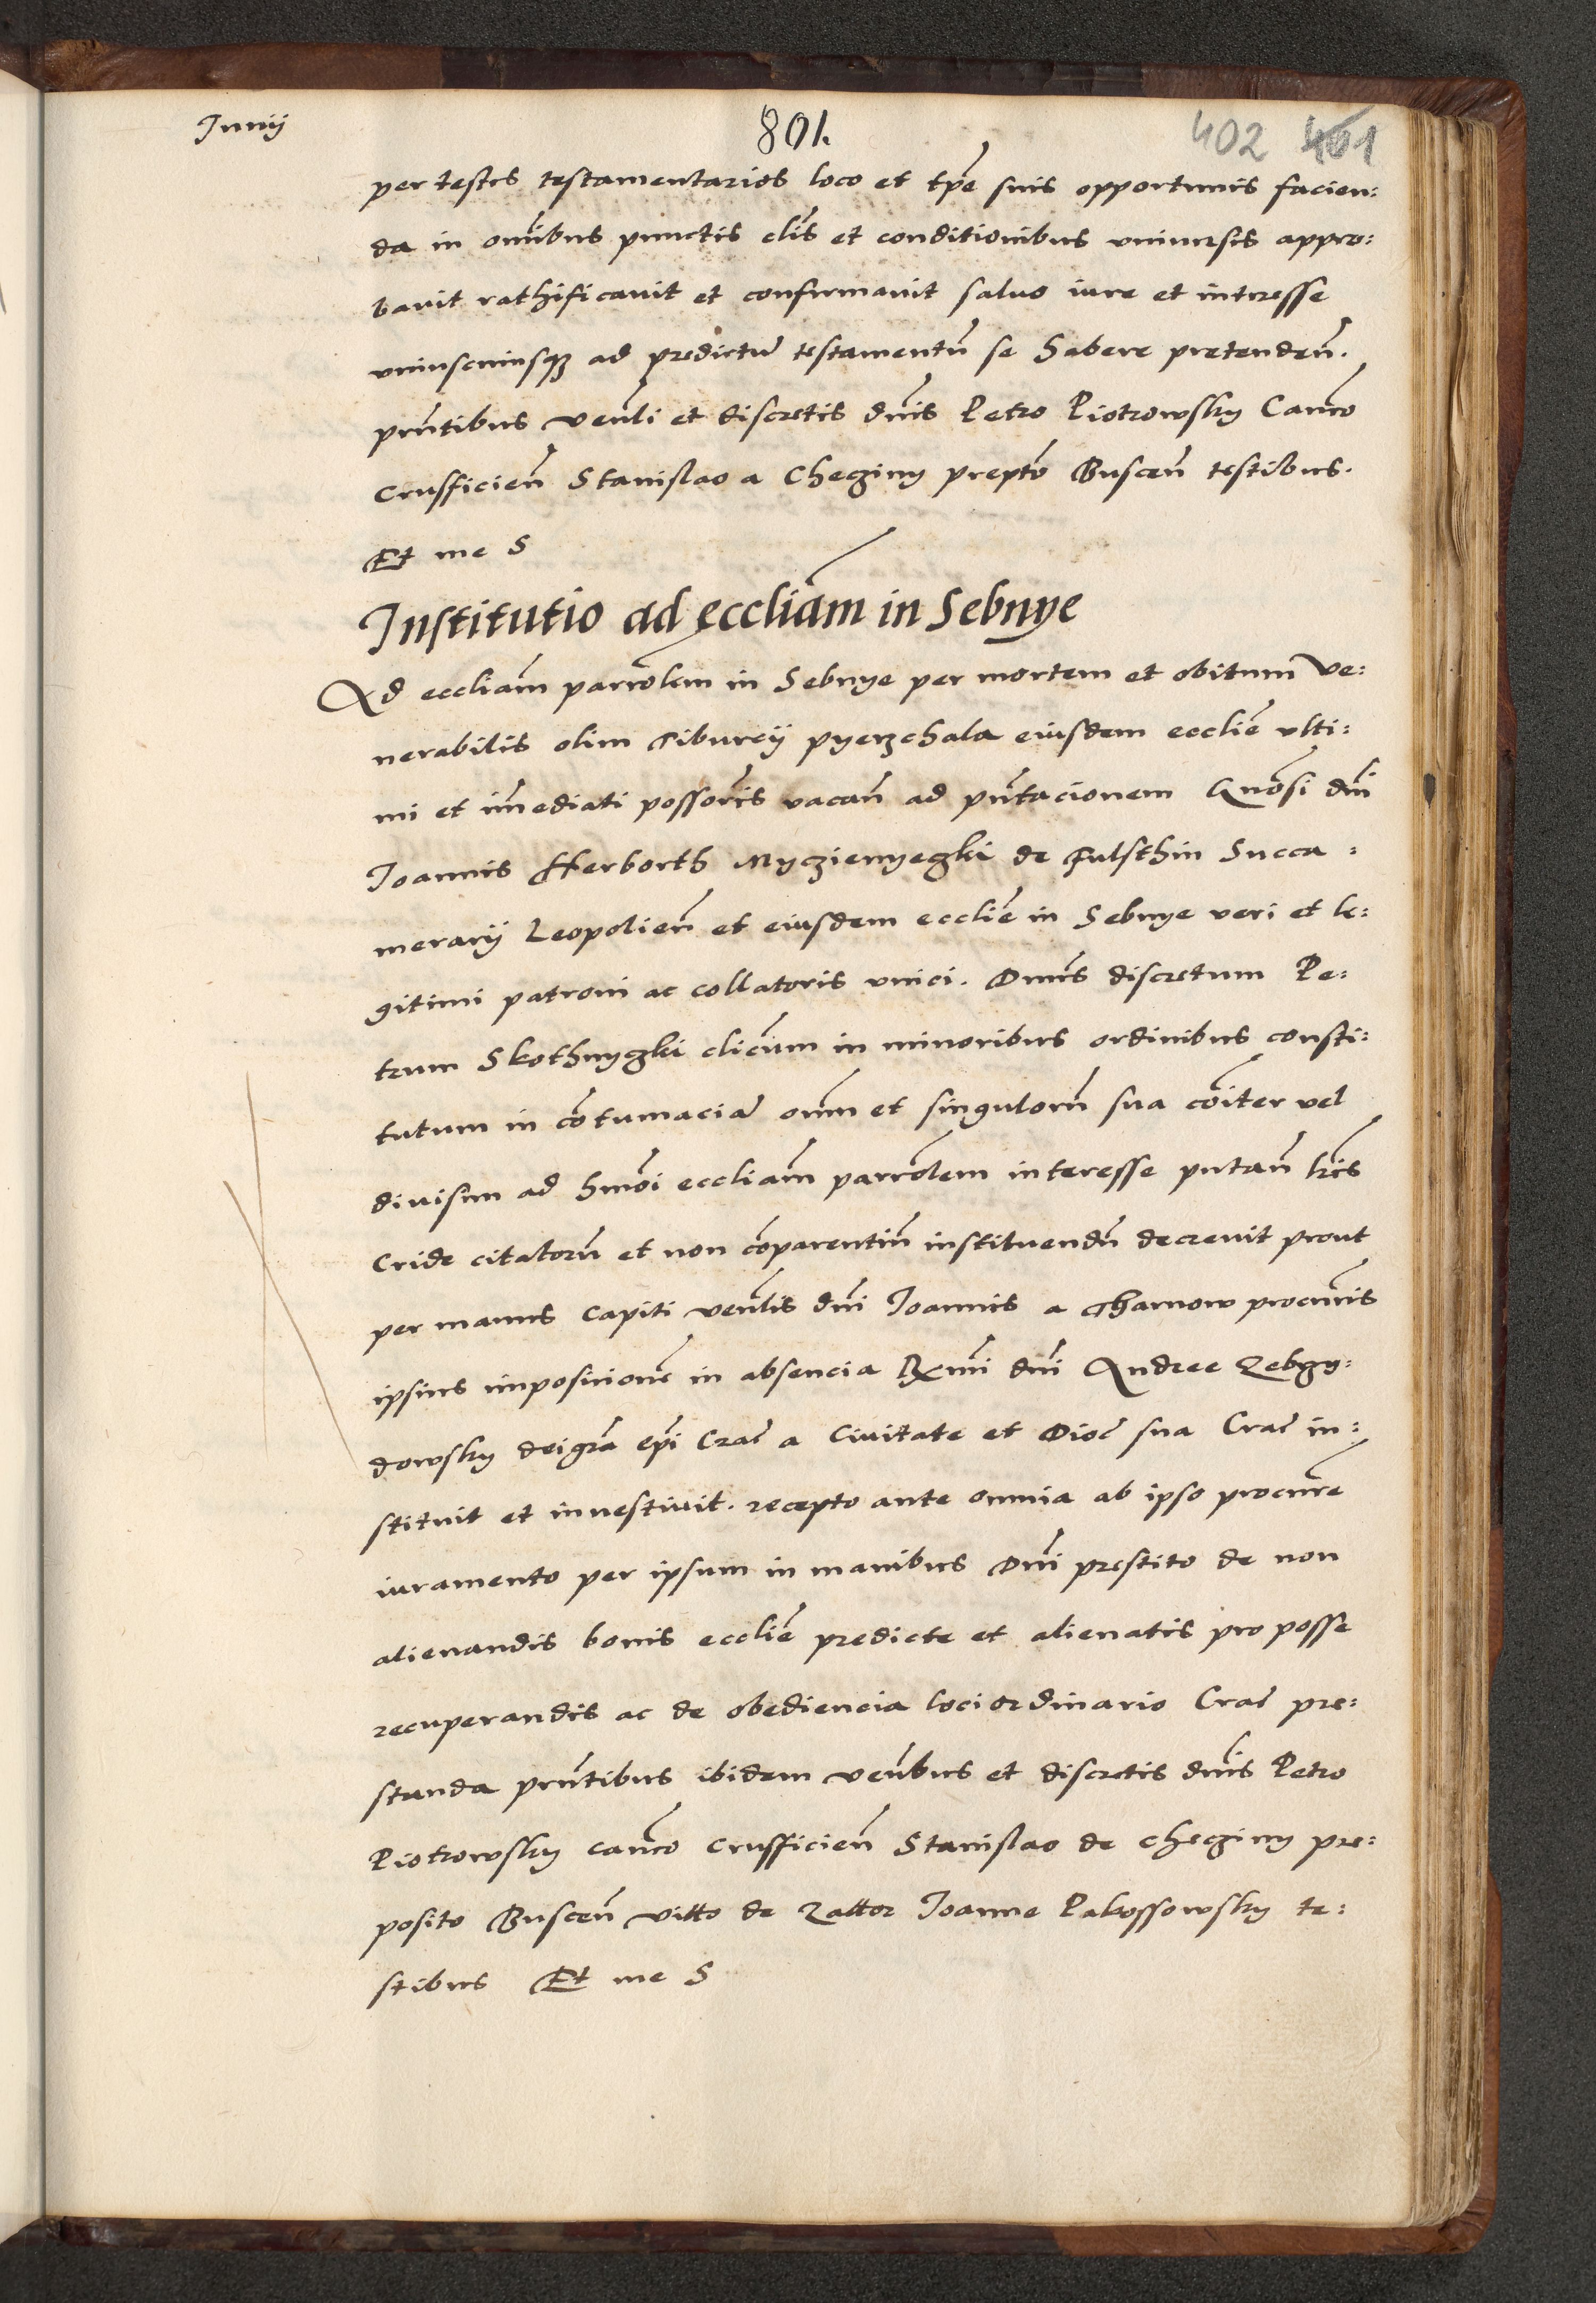 Junij
801.
402 401
per testes testamentarios loco et tp̃e suis opportunis facien:
da in om̃ibus punctis cl̃is et conditionibus uniuersis appro:
bauit rathificauit et confirmauit saluo iure et interesse
vniuscuiusq3 ad predictũ testamentũ se habere pretendeñ.
prñtibus veñli et discretis dñis Petro Piotrowsky Canco
Crusficieñ Stanislao a Cheginy preptõ Busceñ testibus.
Et me S
Institutio ad eccliam̃ in Sebnye
Ad eccliam̃ parrolem̃ in Sebnye per mortem et obitum ve:
nerabilis olim Tiburcij Pyerzchala eiusdem ecclie͂ ulti:
mi et im̃ediati possoris̃ vacañ ad pñtacionem Gnosi dñi
Joannis Herborth Myczienyegki de Fulsthin Succa:
merarij Leopolieñ et eiusdem ecclie͂ in Sebnye veri et le:
gitimi patroni ac collatoris vnici. Dñus discretum Pe:
trum Skothnygki clicum̃ in minoribus ordinibus consti:
tutum in cõtumaciã om̃m et singulorũ sua cõiter vel
diuisim ad hmõi eccliam̃ parrolem̃ interesse putañ lr̃is
Cride citatorũ et non cõparentiũ instituendũ decreuit prout
per manus capiti veñlis dñi Joannis a Tharnow procuris̃
ipsius imposicionẽ in absencia Rxmi dñi Andree Zebgy:
dowsky deigrã epĩ Crac̃ a Ciuitate et Dioc̃ sua Crac̃ in:
stituit et inuestiuit. recepto ante omnia ab ipso procure͂
iuramento per ipsum in manibus Dñi prestito de non
alienandis bonis ecclie͂ predicte et alienatis pro posse
recuperandis ac de obediencia loci ordinario Crac̃ pre:
standa prñtibus ibidem veñbus et discretis dñis Petro
Piotrowsky canco Crusficieñ Stanislao de Cheginy pre:
posito Busceñ vitto de Zattor Joanne Pakossowsky te:
stibus Et me S